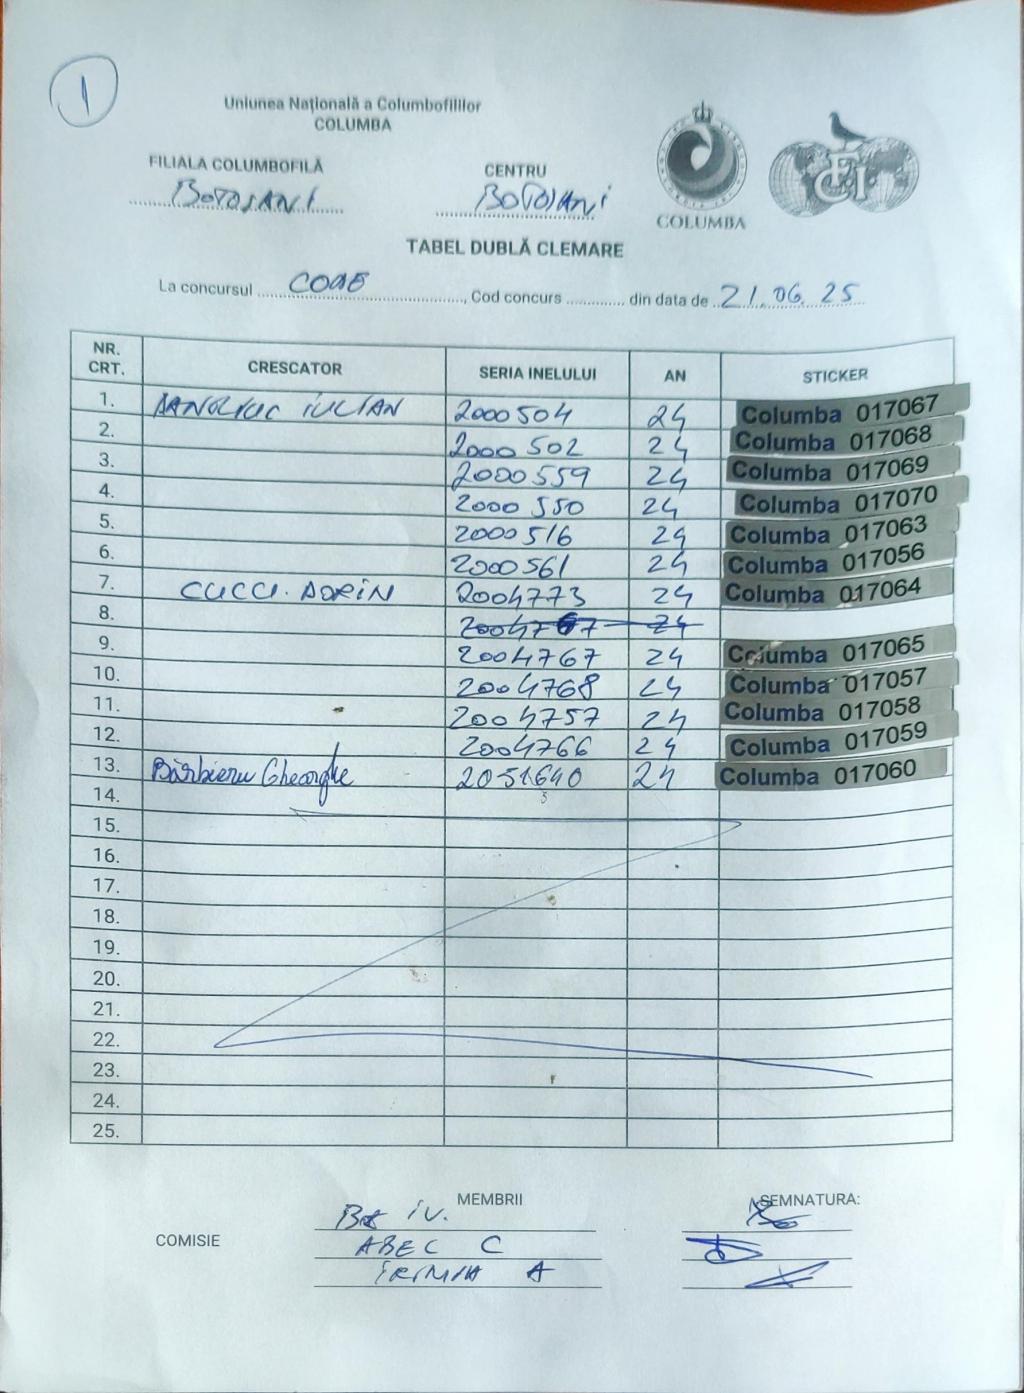 1
Uniunea Națională a Columbofililor
COLUMBA
FILIALA COLUMBOFILĂ CENTRU
BOTOSANI BOTOSANI
COLUMBA
FCI
TABEL DUBLĂ CLEMARE
La concursul ........, Cod concurs ............ din data de 21.06.25
NR. CRT. CRESCATOR SERIA INELULUI AN STICKER
1. IULIAN 2000504 24 Columba 017067
2. 2000502 24 Columba 017068
3. 2000559 24 Columba 017069
4. 2000550 24 Columba 017070
5. 2000516 24 Columba 017063
6. 2000561 24 Columba 017056
7. CUCU. DORIN 2004773 24 Columba 017064
8. 24
9. 2004767 24 Columba 017065
10. 2004768 24 Columba 017057
11. 2004757 24 Columba 017058
12. 2004766 24 Columba 017059
13. Bărbieru Gheorghe 2051640 24 Columba 017060
14.
15.
16.
17.
18.
19.
20.
21.
22.
23.
24.
25.
MEMBRII SEMNATURA:
COMISIE
IV.
ABEC C
IRIMIA A